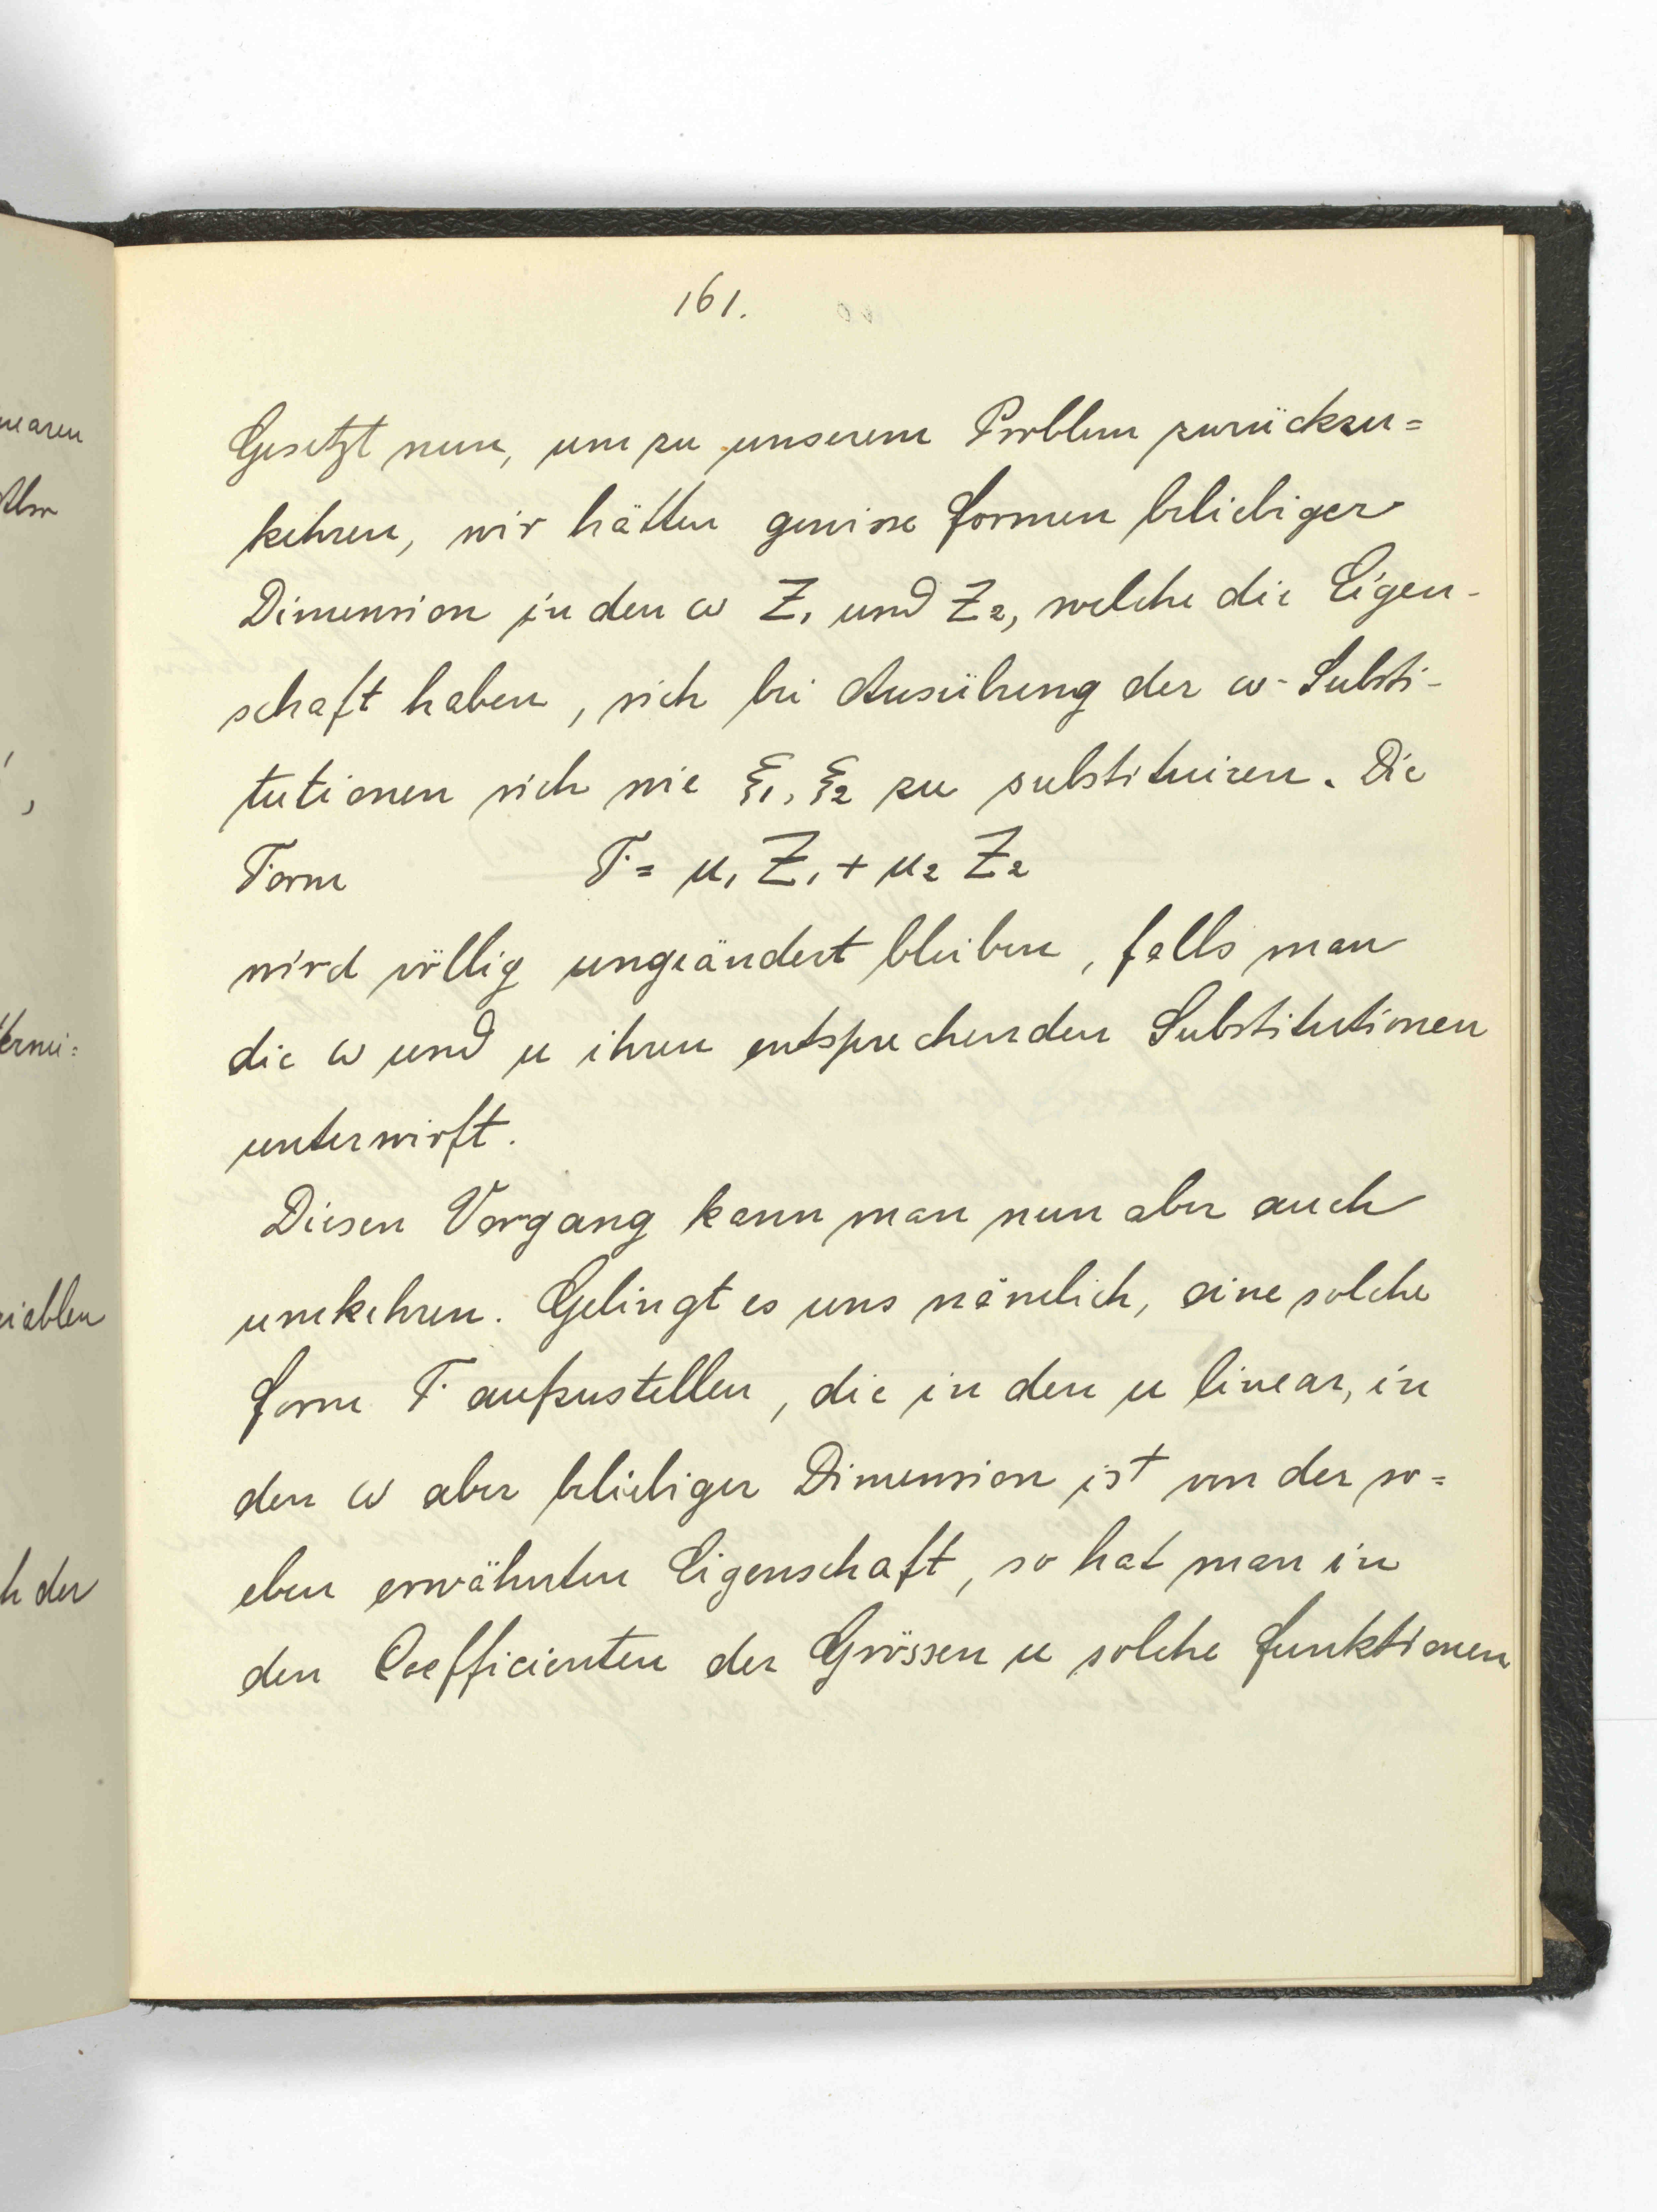 161.
Gesetzt nun, um zu unserem Problem zurückzu=
kehren, wir hätten gewisse Formen beliebiger
Dimension in den ω Z₁ und Z₂, welche die Eigen-
schaft haben, sich bei Ausübung der ω-Substi-
tutionen sich wie ξ₁, ξ₂ zu substituiren. Die
Form F = u₁ Z₁ + u₂ Z₂
wird völlig ungeändert bleiben, falls man
die ω und u ihren entsprechenden Substitutionen
unterwirft.
Diesen Vorgang kann man nun aber auch
umkehren. Gelingt es uns nämlich, eine solche
Form F aufzustellen, die in den u linear, in
den ω aber beliebiger Dimension ist von der so=
eben erwähnten Eigenschaft, so hat man in
den Coefficienten der Grössen u solche Funktionen
nearen
ermi=
riablen
h der